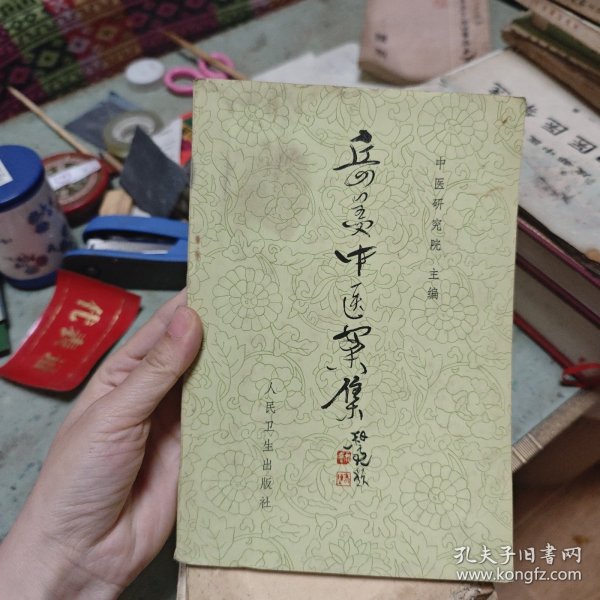 中医研究院 主编
岳美中医案集
人民卫生出版社
代表证
孔夫子旧书网
www.kongfz.com